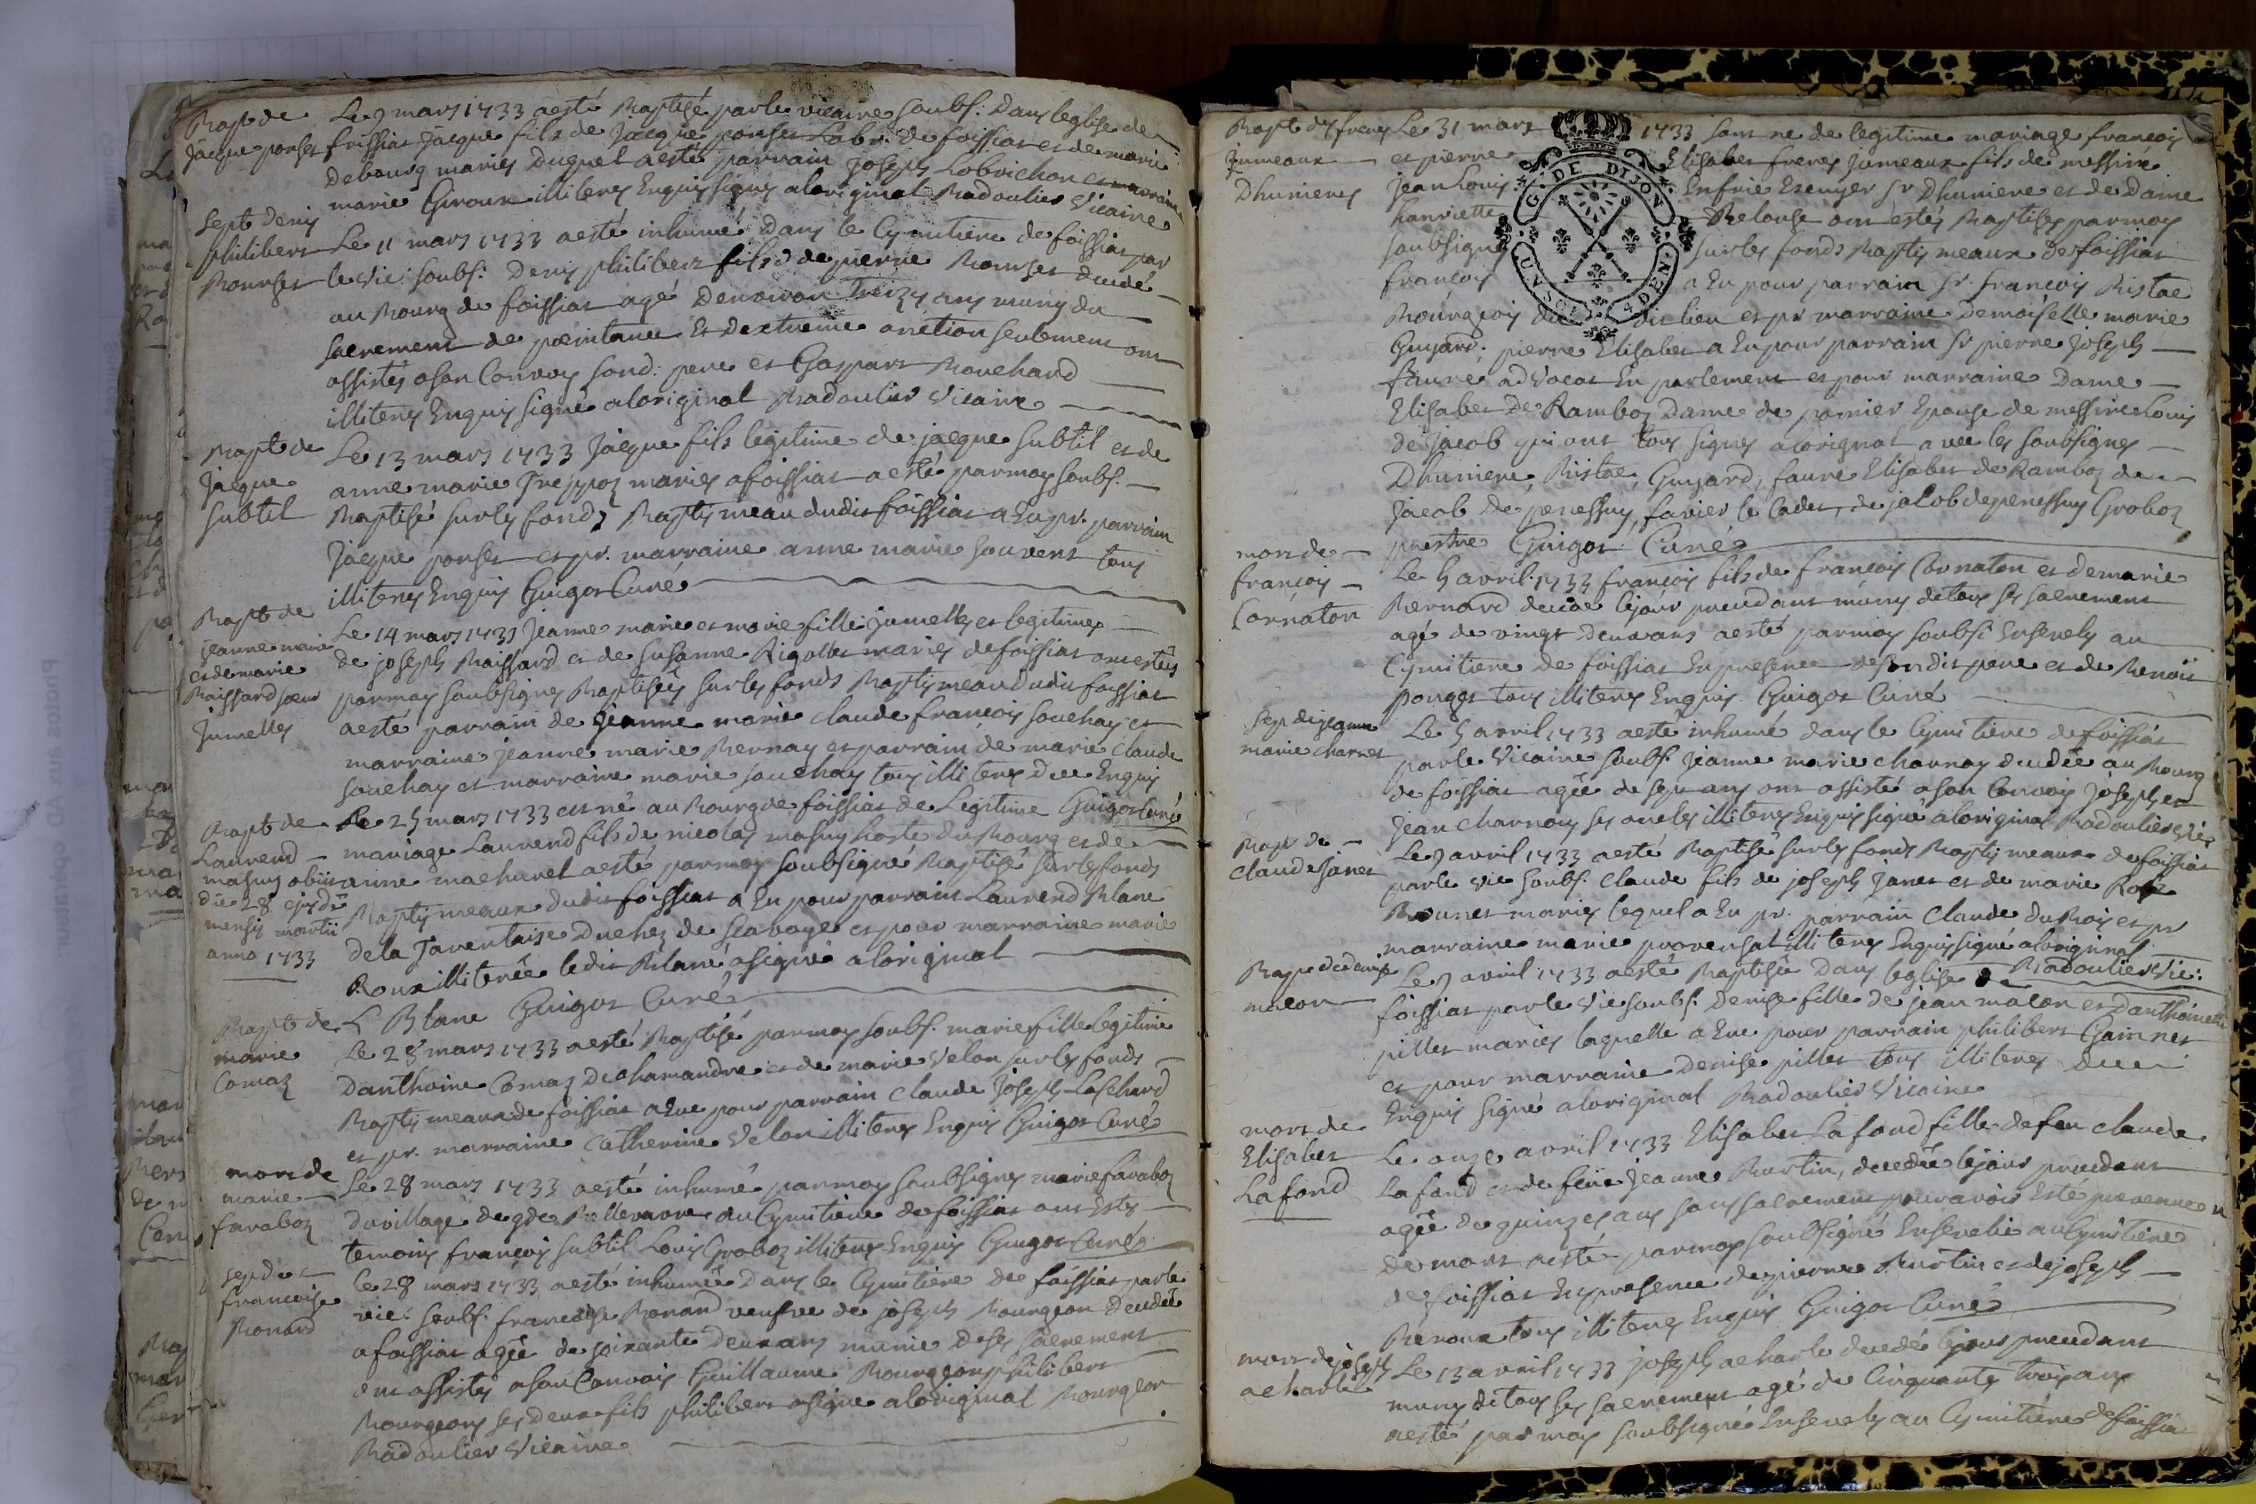 Bapt de
Jacque ponset
Le 9 mars 1733 a esté Baptisé par le vicaire soubs: dans leglise de
foissiat Jacque fils de Jacque ponset Lab: de foissiat et de marie
debourg mariés duquel a esté parrain Joseph Lobrichon et marraine
marie Giroux illiterés Enquis signés a loriginal Badoulier Vicaire
Sept denis
philibert
Bourset
Le 11 mars 1733 a esté inhumé dans le Cymitiere de foissiat par
le vic: soubs: denis philibert fils de pierre Bourset decedé
au Bourg de foissiat agé denviron treize ans muny du
sacrement de pœnitance Et dextreme onction seulement ont
assistés a son Convoy sond: pere et Gaspart Bouchard
illiterés Enquis signé a loriginal Badoulier Vicaire
Bapt de
Jacque
Subtil
Le 13 mars 1733 Jacque fils legitime de jacque Subtil et de
anne marie mariés a foissiat a esté par moy soubs:
Baptisé sur les fonds Baptismeau dudit foissiat a Eu pr. parrain
Jacque ponset et pr. marraine anne marie Souvent tous
illiterés Enquis Guigot Curé
Bapt de
jeanne marie
et de marie
Baissard sœur
Jumelles
Le 14 mars 1733 Jeanne marie et marie fille jumelles et legitimes
de joseph Baissard et de Susanne Rigollet mariés de foissiat ont estés
par moy soubsignés Baptisées sur les fonds Baptismeau dudit foissiat
a esté parrain de jeanne marie Claude françois souchay et
marraine jeanne marie Bernay et parrain de marie Claude
souchay et marraine marie souchay tous illiterés duee Enquis
Guigot Curé
Bapt de
Laurend
mathy obiit
die 28 ejusde
mensis martii
anno 1733
Le 25 mars 1733 est né au Bourg de foissiat de Legitime
mariage Laurend fils de nicolas hoste du Bourg et de
anne machuret a esté par moy soubsigné Baptisé sur les fonds
Baptismeaux dudit foissiat a Eu pour parrain Laurend Blanc
de la Tarentaise Duchez de Scavoye et pour marraine marie
Roux illiterée ledit Blanc a signé a loriginal
L Blanc Guigot Curé
Bapt de
marie
Comaz
Le 28 mars 1733 a esté Baptisé par moy soubs: marie fille legitime
danthoine Comaz de chamandre et de marie Velon sur les fonds
Baptismeaux de foissiat a Eue pour parrain Claude Joseph
et pr. marraine Catherine Velon illiterés Enquis Guigot Curé
mort de
marie
faraboz
Le 28 mars 1733 a esté inhumé par moy soubsignes marie faraboz
du village de gde Bellevavre au Cymitiere de foissiat ont Estés
temoins françois subtil Louis Groboz illiterés Enquis Guigot Curé
sep de
francoise
Monard
Le 28 mars 1733 a esté inhumée dans le Cymitiere de foissiat par le
vic: soubs: francoise Monard veufve de joseph Bourgeon decedée
a foissiat agée de soixante deux ans munie de ses sacrement
ont assistés a son Convois Guillaume Bourgeon philibert
Bourgeons ses deux fils philibert a signé a loriginal Bourgeon
Badoulier Vicaire
Bapt des freres
Jumeaux
Dhunieres
Le 31 mars 1733 sont né de legitime mariage françois
et pierre Elisabet freres Jumeaux fils de messire
jean Louis Escuyer Sr Dhuniere et de Dame
henriette ont estés Baptisés par moy
soubsigné sur les fonds Baptismeaux de foissiat
françois a Eu pour parrain Sr. françois Bistac
Bourgeois du dit lieu et pr marraine demoiselle marie
Guyard; pierre Elisabet a Eu pour parrain Sr pierre Joseph
faure advocat En parlement et pour marraine Dame
Elisabet De Ramboz Dame de Epouse de messire Louis
de jacob qui ont tous signés a lorignal avec les soubsignés
Dhuniere, Bistac, Guyard, faure Elisabet de Ramboz de
jacob De peressuy, favier le Cadet, de jacob de peressuy Groboz
prestre Guigot Curé
mort de
françois
Cornaton
Le 5 avril 1733 françois fils de françois Cornaton et de marie
Bernard decede le jour precedant muny de tous ses sacrement
agé de vingt deux ans a esté par moy soubs: Ensevely au
Cymitiere de foissiat En presence de son dit pere et de Benoit
ponget tous illiterés Enquis Guigot Curé
Sep de jeanne
marie Charnet
Le 5 avril 1733 a esté inhumé dans le Cymitiere de foissiat
par le Vicaire soubs: Jeanne marie charnay decedée au Bourg
de foissiat agée de sept ans ont assisté a son Convois Joseph et
Jean Charnay ses oncles illiterés Enquis signé a loriginal Badoulier vic
Bapt de
Claude Janet
Le 9 avril 1733 a esté Baptisé sur les fonds Baptismeaux de foissiat
par le vic soubs: Claude fils de joseph Janet et de marie Rose
Brunet mariés lequel a Eu pr. parrain Claude duBois et pr
marraine marie provensat illiterés Enquis signé a lorignal
Badoulier Vic:
Bapt de denise
macon
Le 9 avril 1733 a esté Baptisée Dans leglise
foissiat par le vic soubs: Denise fille de jean macon et danthoinette
pillet mariés laquelle a Eue pour parrain philibert
et pour marraine Denise pillet tous illiterés duee
Enquis signé a loriginal Badoulier Vicaire
mort de
Elisabet
Lafond
Le onze avril 1733 Elisabet Lafond fille de feu claude
Lafond et de feüe Jeanne Burtin, decedée le jour precedant
agée de quinzes ans sans sacrement pour avoir Esté prevenue
de mort a esté par moy soubsigné Ensevelie au Cymitiere
de foissiat En presence de pierre Burtin et de joseph
Beroux tous illiterés Enquis Guigot Curé
mort de joseph
acharle
Le 13 avril 1733 joseph acharle decedé le jour precedant
muny de tous ses sacrement agé de Cinquante trois ans
a esté par moy soubsigné Ensevelis au Cymitiere de foissia
G. DE DIJON